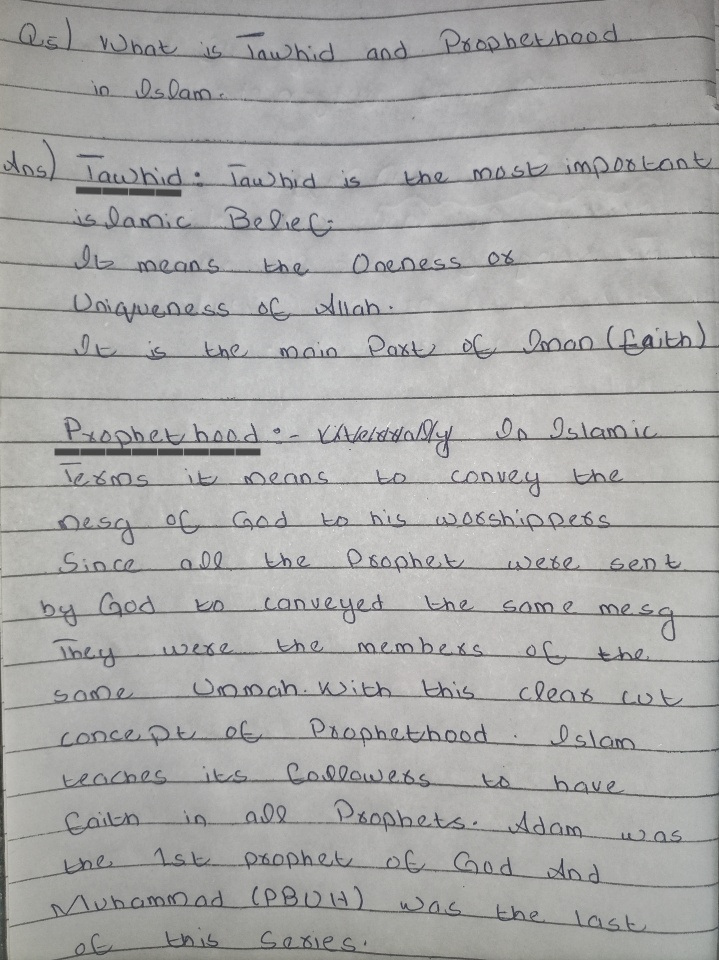 Q5) What is Tawhid and Prophethood
in Islam.
Ans) Tawhid : Tawhid is the most important
islamic Belief:
It means the Oneness or
Uniqueness of Allah.
It is the main Part of Iman (faith)
Prophethood :- In Islamic
Terms it means to convey the
mesg of God to his worshippers
Since all the Prophet were sent
by God to conveyed the same mesg
They were the members of the
same Ummah. With this clear cut
concept of Prophethood. Islam
teaches its followers to have
faith in all Prophets. Adam was
the 1st prophet of God And
Muhammad (PBUH) was the last
of this series.